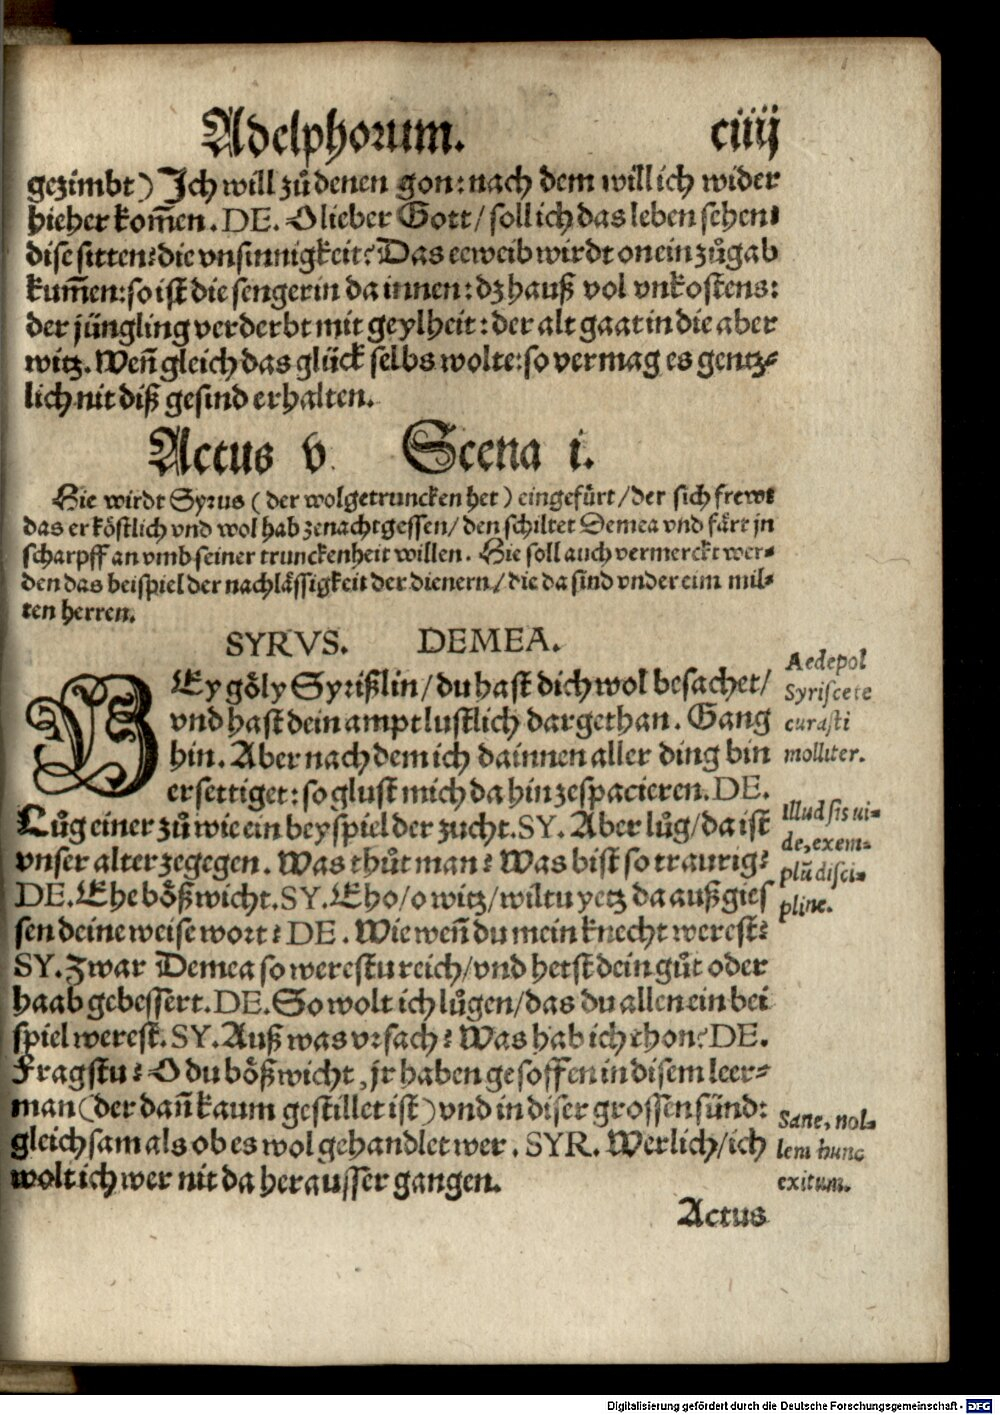 Adelphorum. ciiij
gezimbt) Ich will zů denen gon: nach dem will ich wider
hieher kom̃en. DE. O lieber Gott / soll ich das leben sehen:
dise sitten: die vnsinnigkeit? Das eeweib wirdt on ein zůgab
kum̃en: so ist die sengerin da innen: dz hauß vol vnkostens:
der jüngling verderbt mit geylheit: der alt gaat in die aber
witz. Weñ gleich das glück selbs wolte: so vermag es gentz-
lich nit diß gesind erhalten.
Actus v. Scena i.
Hie wirdt Syrus ( der wolgetruncken het ) eingefürt / der sich frewt
das er köstlich vnd wol hab zenacht gessen / den schiltet Demea vnd färt jn
scharpff an vmb seiner trunckenheit willen. Hie soll auch vermerckt wer-
den das beispiel der nachlässigkeit der dienern / die da sind vnder eim mil-
ten herren.
SYRVS. DEMEA.
Ey göly Syrißlin / du hast dich wol besachet /
vnd hast dein ampt lustlich dargethan. Gang
hin. Aber nach dem ich dainnen aller ding bin
ersettiget: so glust mich da hin zespacieren. DE.
Lůg einer zů wie ein beyspiel der zucht. SY. Aber lůg / da ist
vnser alter zegegen. Was thůt man? Was bist so traurig?
DE. Ehe bößwicht. SY. Eho / o witz / wiltu yetz da außgies
sen deine weise wort? DE. Wie weñ du mein knecht werest?
SY. Zwar Demea so werestu reich / vnd hetst dein gůt oder
haab gebessert. DE. So wolt ich lůgen / das du allen ein bei
spiel werest. SY. Auß was vrsach? Was hab ich thon? DE.
Fragstu? O du bößwicht, jr haben gesoffen in disem leer-
man (der dañ kaum gestillet ist) vnd in diser grossen sünd:
gleichsam als ob es wol gehandlet wer. SYR. Werlich / ich
wolt ich wer nit da herausser gangen.
Actus
Aedepol
Syriscete
curasti
molliter.
Illud sis ui-
de, exem-
plũ disci-
pline.
Sane, nol-
lem hunc
exitum.
Digitalisierung gefördert durch die Deutsche Forschungsgemeinschaft - DFG